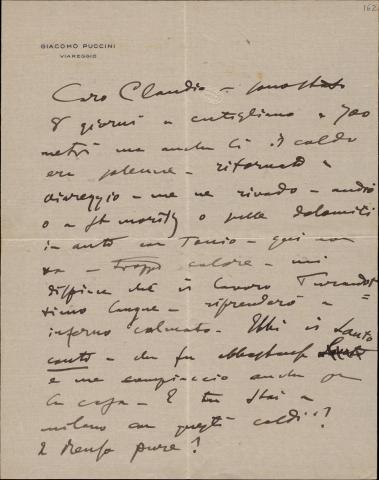 162
GIACOMO PUCCINI
VIAREGGIO
Caro Claudio – sono stato
8 giorni a cutigliano a 700
metri ma anche lì il caldo
era solenne – ritornato a
viareggio – me ne rivado – andrò
o a St moritz o sulle dolomiti
in auto con Tonio – qui non
va – troppo calore – mi
dispiace chè il lavoro Turandot
= timo langue – riprenderò a
inferno calmato. Ebbi il Santo
conto – che fu abbastanza
e me compiaccio anche per
la casa – E tu stai a
milano con questi caldi?
E Renzo pure?